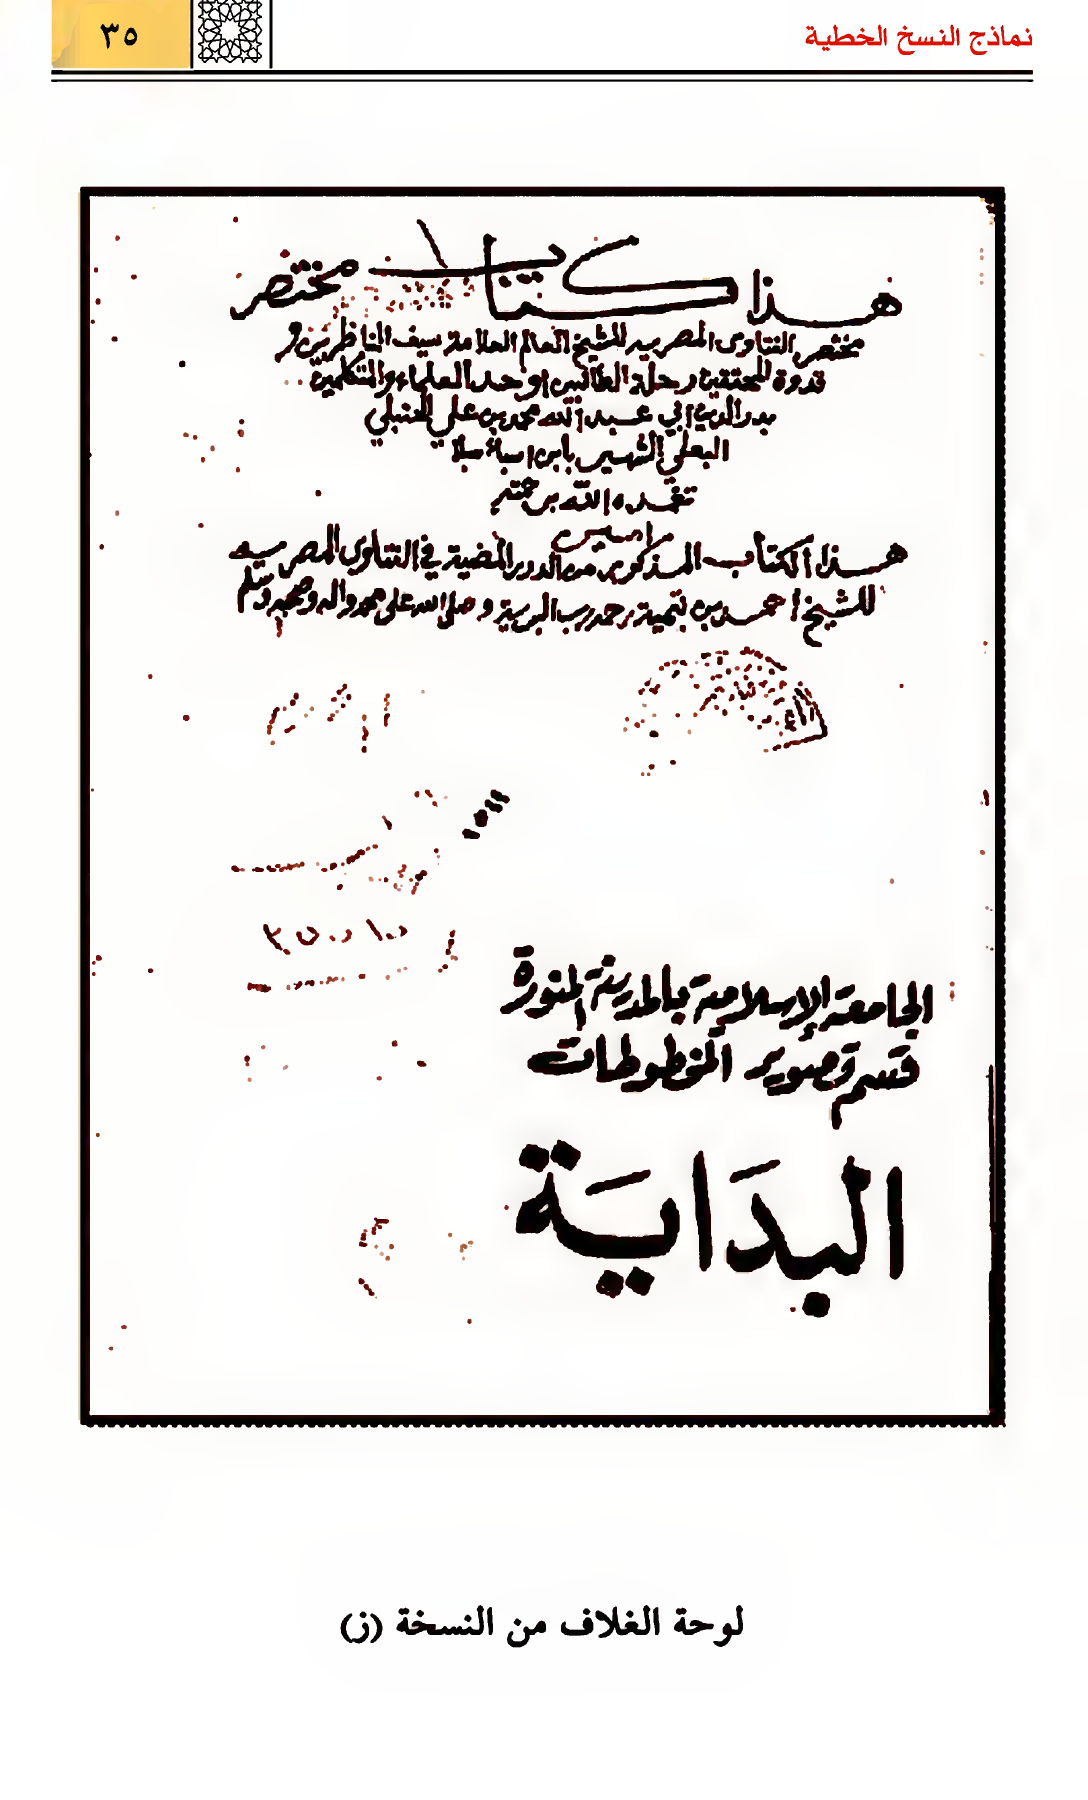 نماذج النسخ الخطية
٣٥
هذا كتاب مختصر
مختصر الفتاوى المصرية للشيخ العالم العلامة سيف الناظرين و
قدوة المحققين رحلة الطالبين اوحد العلماء والمتكلمين
بدر الدين ابي عبد الله محمد بن علي الحنبلي
البعلي الشهير بابن اسباسلار
تغمده الله برحمته
امين
هذا الكتاب المذكور من الدرر المضية في الفتاوى المصريه
للشيخ احمد بن تيمية رحمه رب البرية وصلى الله على محمد واله وصحبه وسلم
الجامعة الإسلامية بالمدينة المنورة
قسم تصوير المخطوطات
البدَايَة
لوحة الغلاف من النسخة (ز)